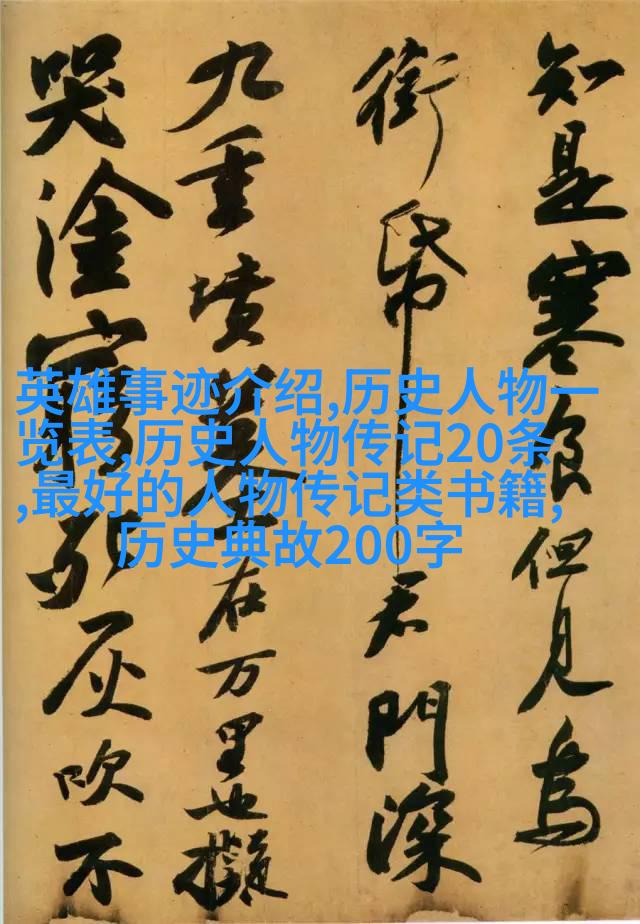 知是寒食但見烏
銜帋君門深
九重墳墓在万里也擬
哭塗窮死灰吹不
英雄事迹介绍,历史人物一
览表,历史人物传记20条
,最好的人物传记类书籍,
历史典故200字